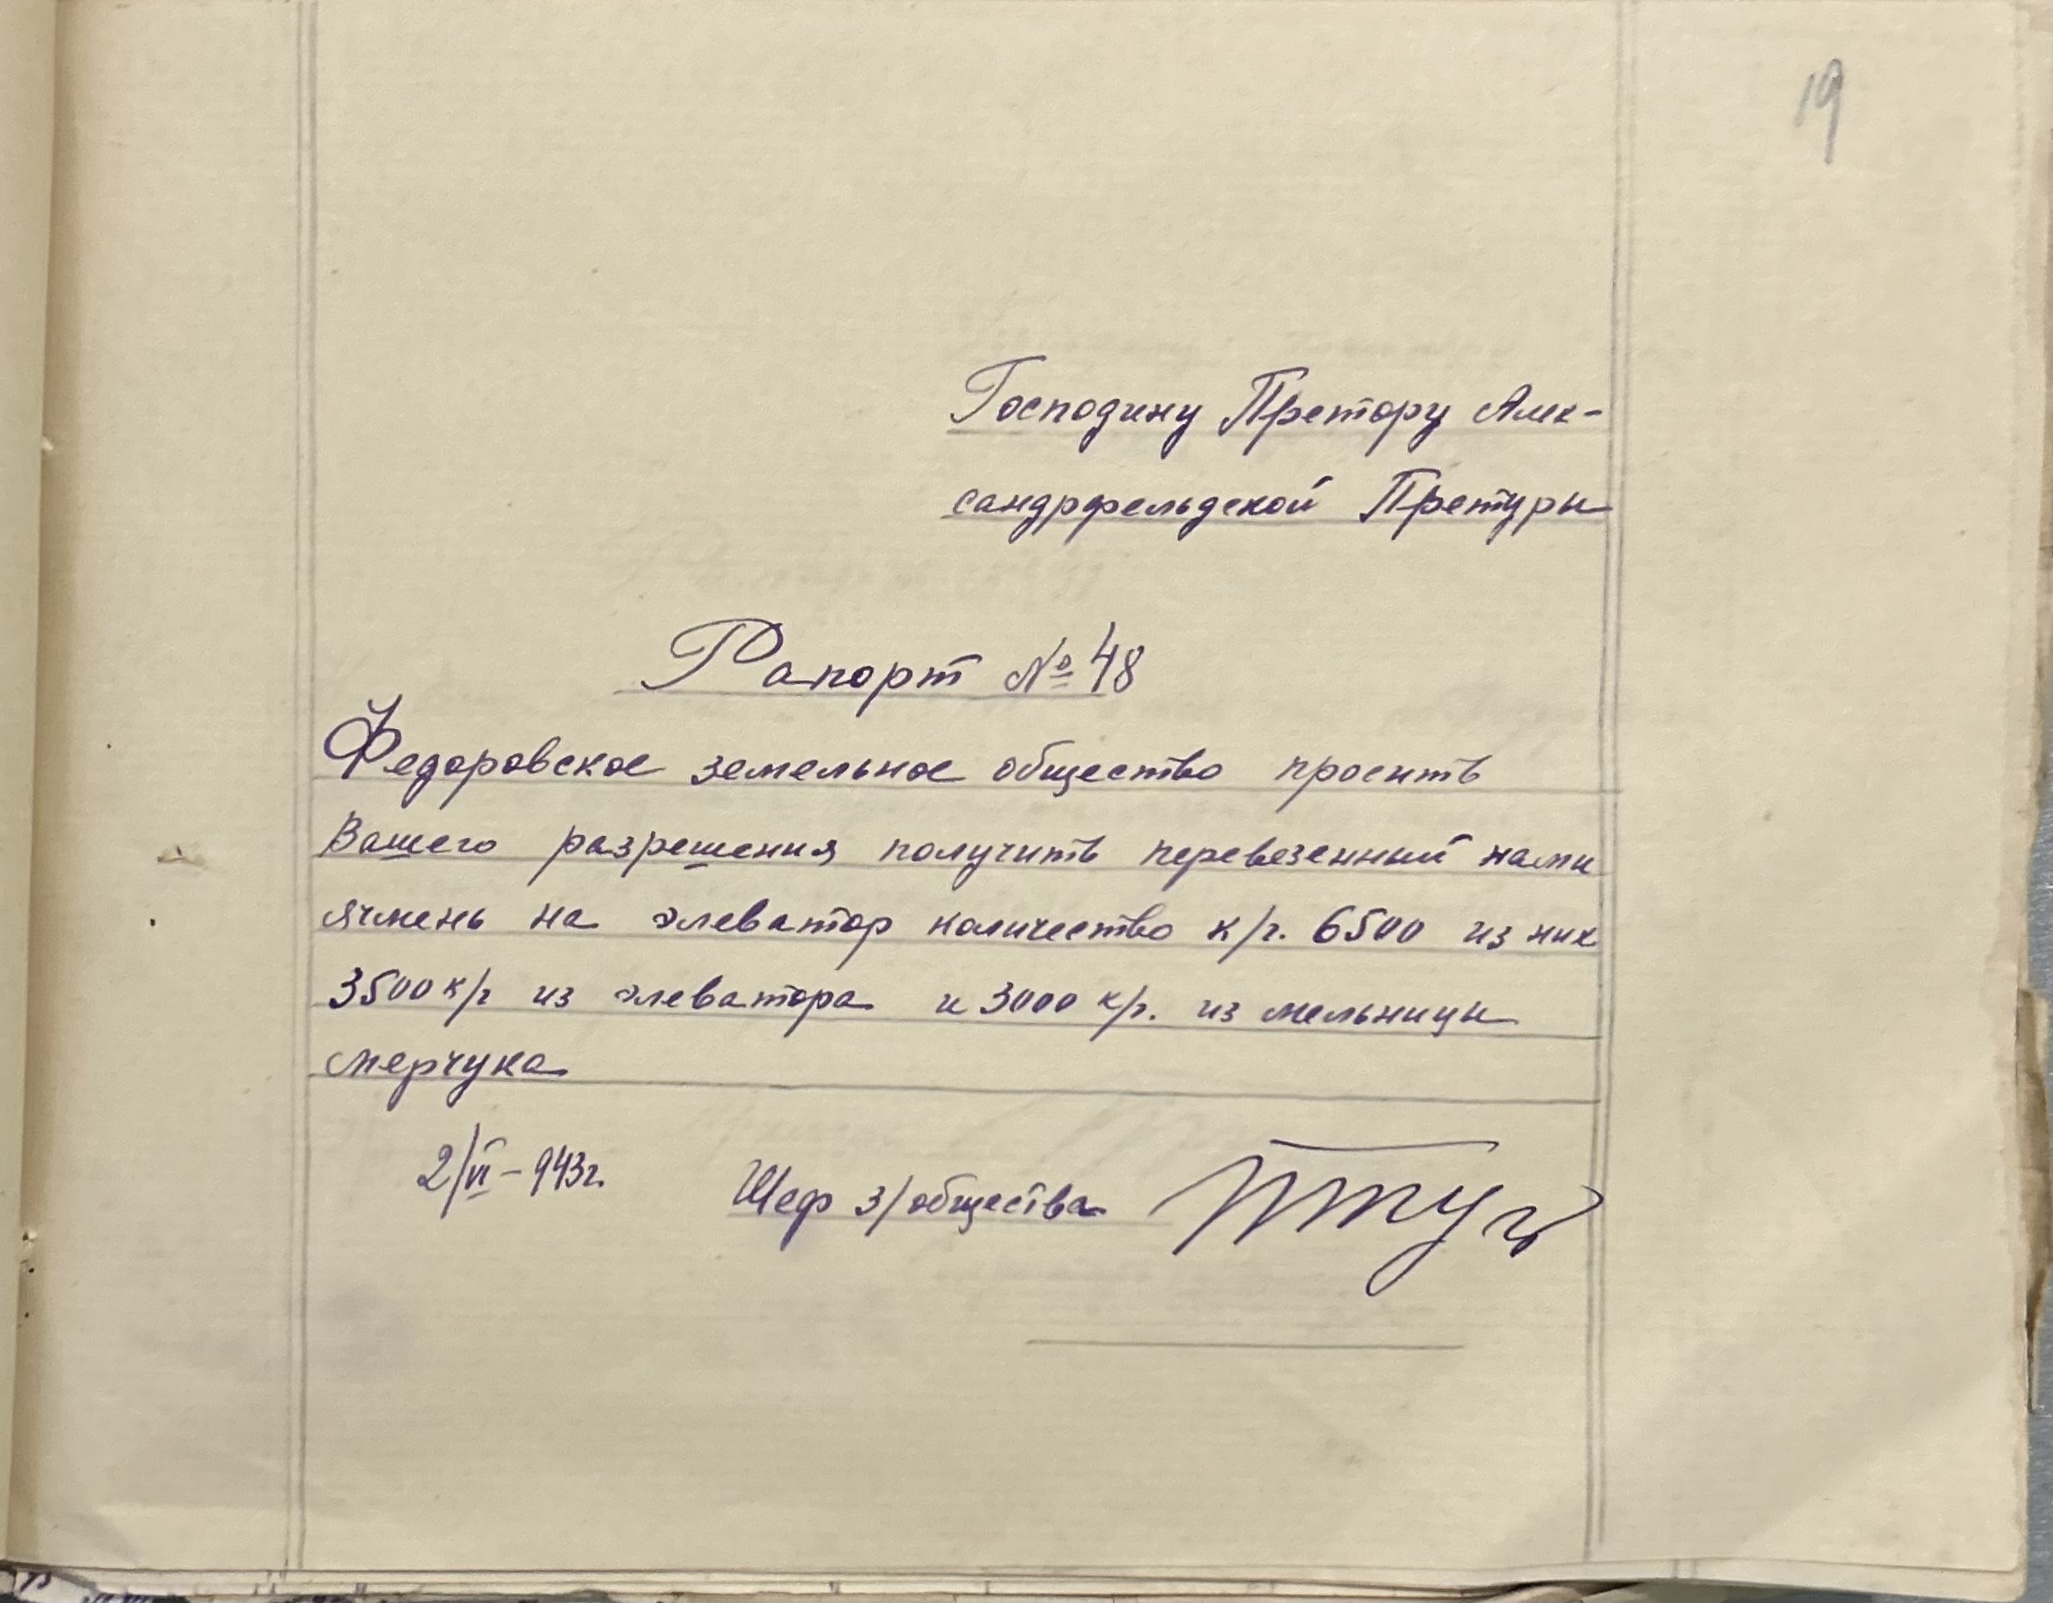 19
Господину Претору Алек-
сандрфельдской Претуры
Рапорт № 48
Федоровское земельное общество просить
Вашего разрешения получить перевезенный нами
ячмень на элеватор количество к/г. 6500 из них
3500 к/г из элеватора и 3000 к/г. из мельницы
мерчука
2/VI – 943 г.   Шеф з/общества